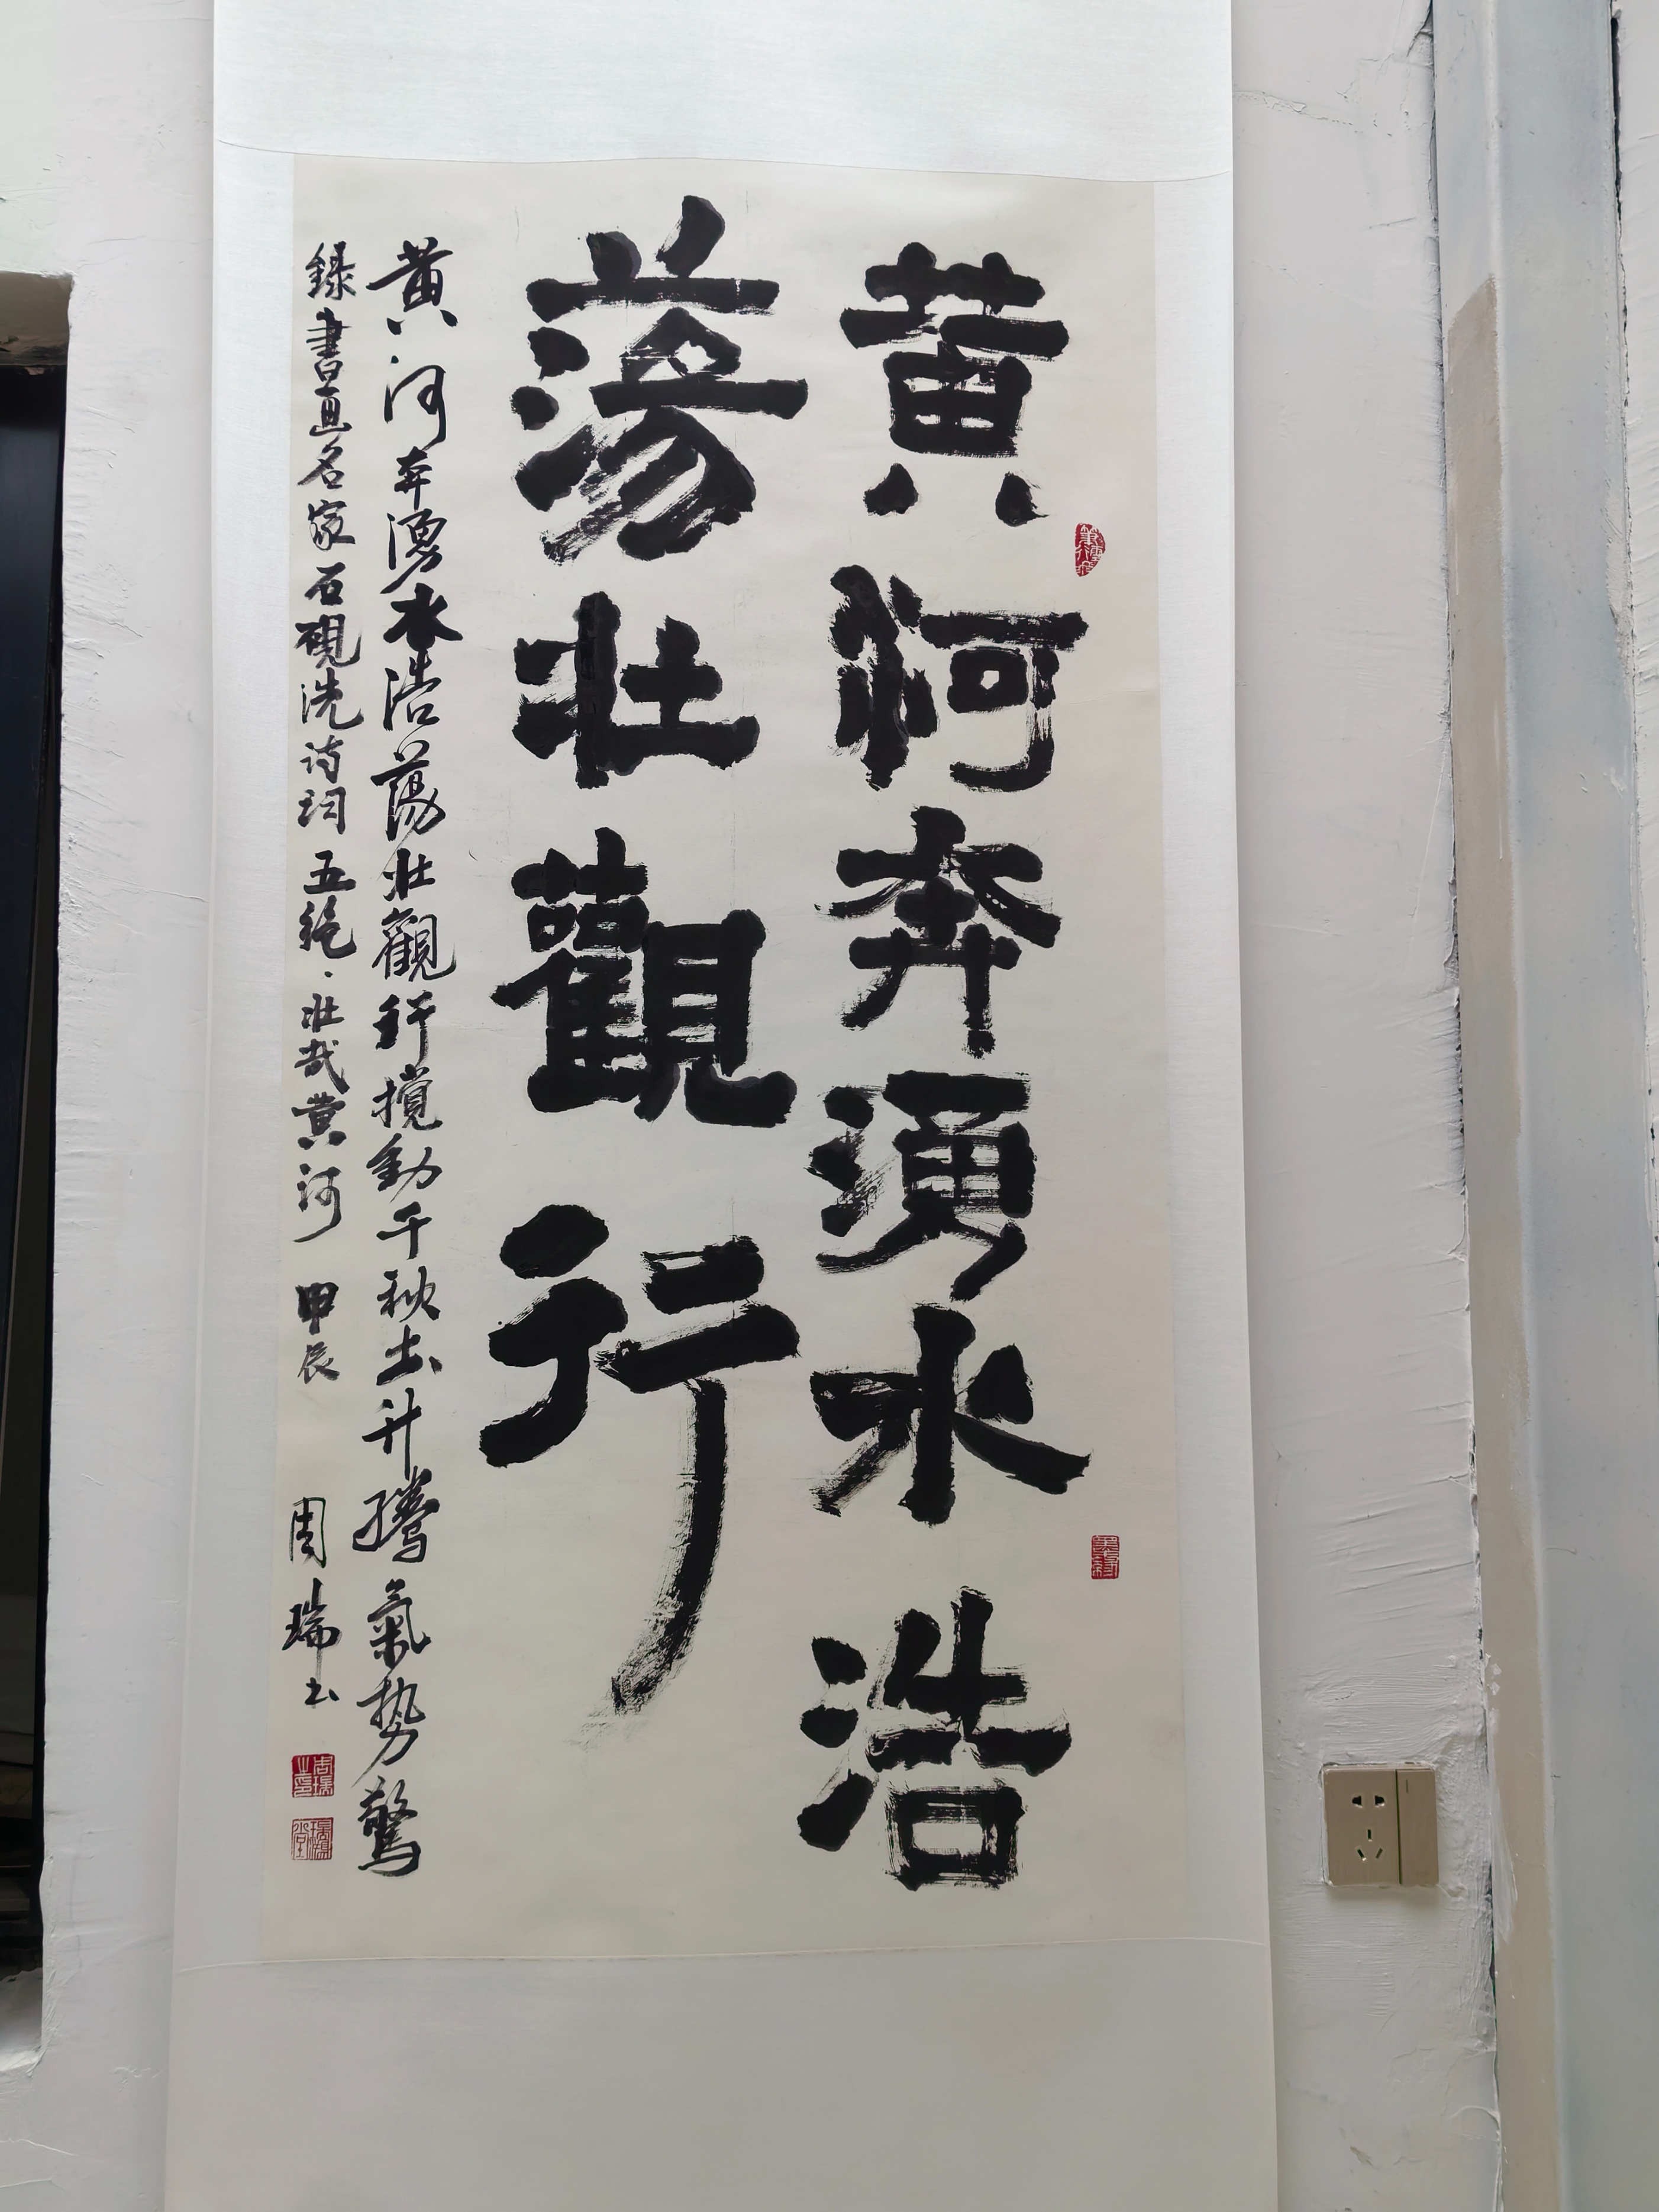 黄河奔湧水浩
蕩壯觀行
黄河奔湧水浩蕩壯觀行攪動千秋土升騰氣势驚
録書画名家石硯洗诗词五絶·壯哉黄河 甲辰 周瑞书